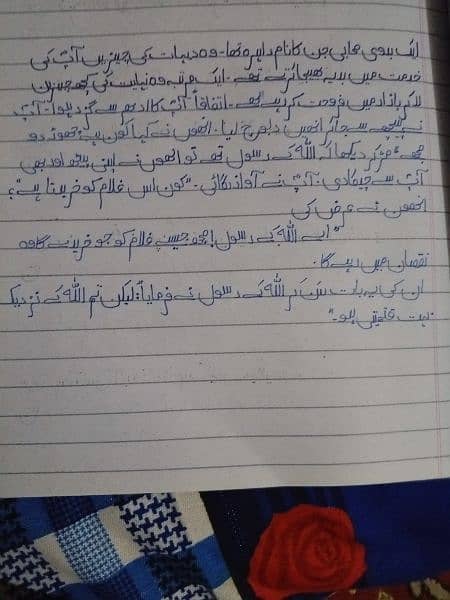 ایک بدوی صحابی جن کا نام زاہرہ تھا۔ وہ دیہات کی چیزیں آپؐ کی
خدمت میں ہدیہ بھیجا کرتے تھے۔ ایک مرتبہ وہ دیہات کی کچھ چیزیں
لا کر بازار میں فروخت کر رہے تھے۔ اتفاقاً آپؐ کا ادھر سے گزر ہوا۔ آپؐ
نے پیچھے سے جا کر انھیں دبوچ لیا۔ انھوں نے کہا کون ہے؟ چھوڑ دو
مجھے مڑ کر دیکھا کہ اللہ کے رسول تھے تو انھوں نے اپنی پیٹھ اور بھی
آپؐ سے چپکا دی۔ آپؐ نے آواز لگائی۔ "کون اس غلام کو خریدتا ہے؟"
انھوں نے عرض کی
"اے اللہ کے رسول! مجھ جیسے غلام کو جو خریدے گا وہ
نقصان میں رہے گا۔
ان کی یہ بات سن کر اللہ کے رسول نے فرمایا: لیکن تم اللہ کے نزدیک
بہت قیمتی ہو۔"